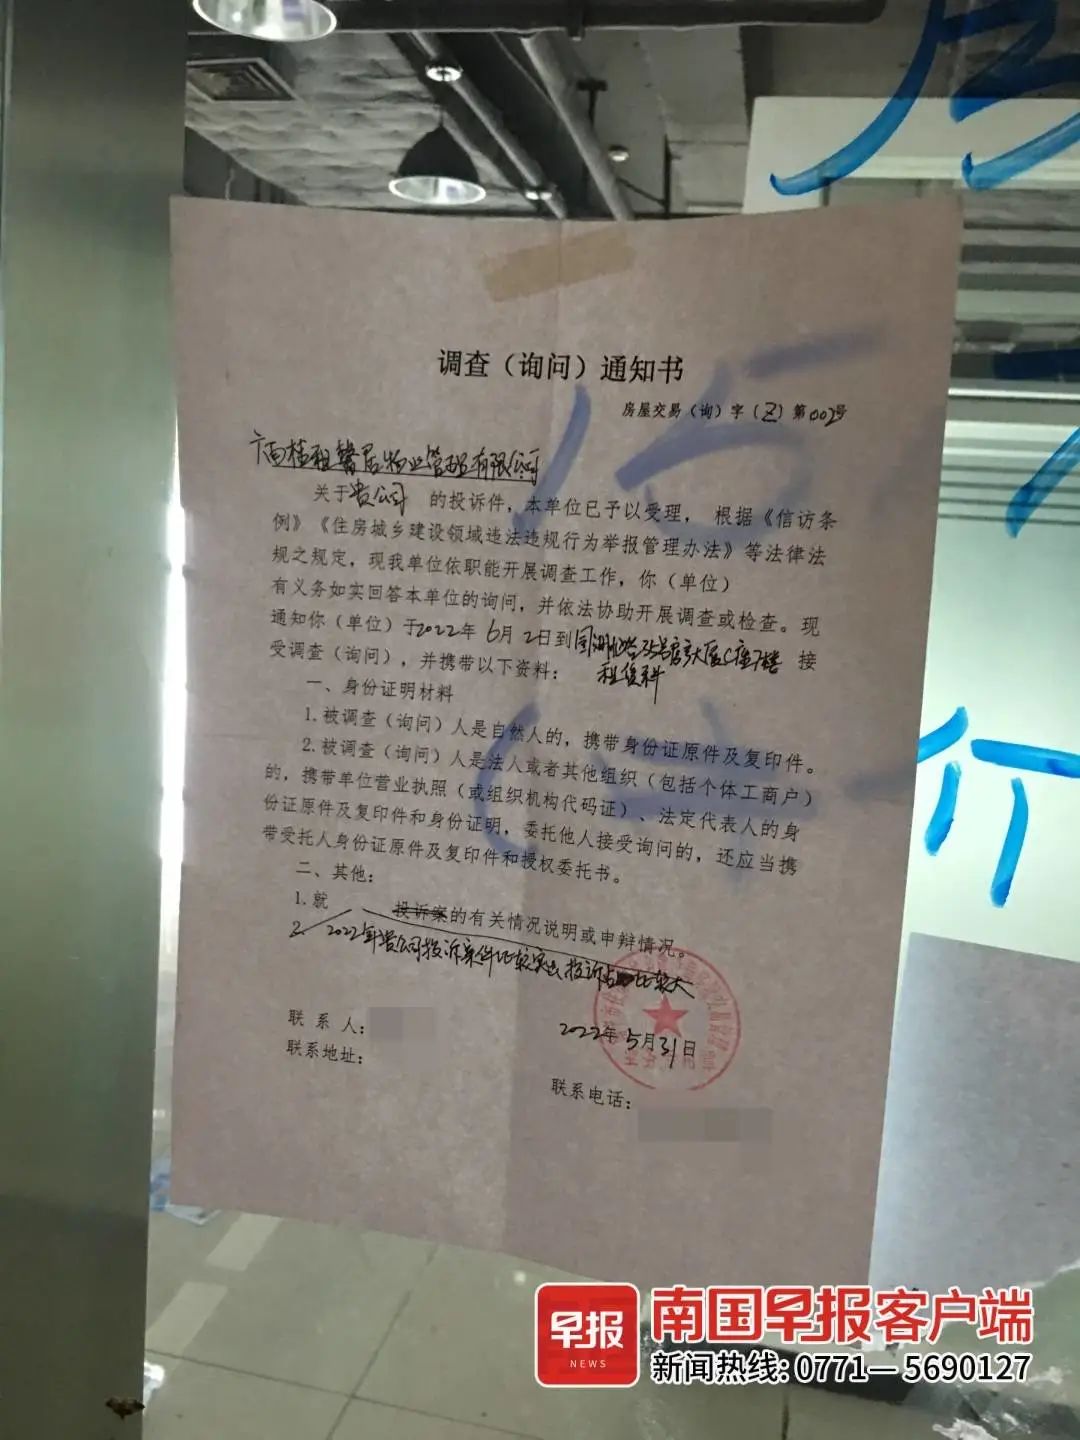 调查（询问）通知书
房屋交易（询）字（Z）第002号
广西桂租馨居物业管理有限公司
关于贵公司 的投诉件，本单位已予以受理， 根据《信访条
例》《住房城乡建设领域违法违规行为举报管理办法》等法律法
规之规定，现我单位依职能开展调查工作，你（单位）
有义务如实回答本单位的询问，并依法协助开展调查或检查。现
通知你（单位）于2022年 6月 2日到 大厦C座7楼 接
租赁科
受调查（询问），并携带以下资料：
一、身份证明材料
1.被调查（询问）人是自然人的，携带身份证原件及复印件。
2.被调查（询问）人是法人或者其他组织（包括个体工商户）
的，携带单位营业执照（或组织机构代码证）、法定代表人的身
份证原件及复印件和身份证明，委托他人接受询问的，还应当携
带受托人身份证原件及复印件和授权委托书。
二、其他：
1.就 投诉案的有关情况说明或申辩情况。
2. 2022年贵公司投诉案件比较突出 投诉占比较大
联 系 人：
2022年 5月31日
联系地址：
联系电话：
行
早报
NEWS
南国早报客户端
新闻热线：0771—5690127